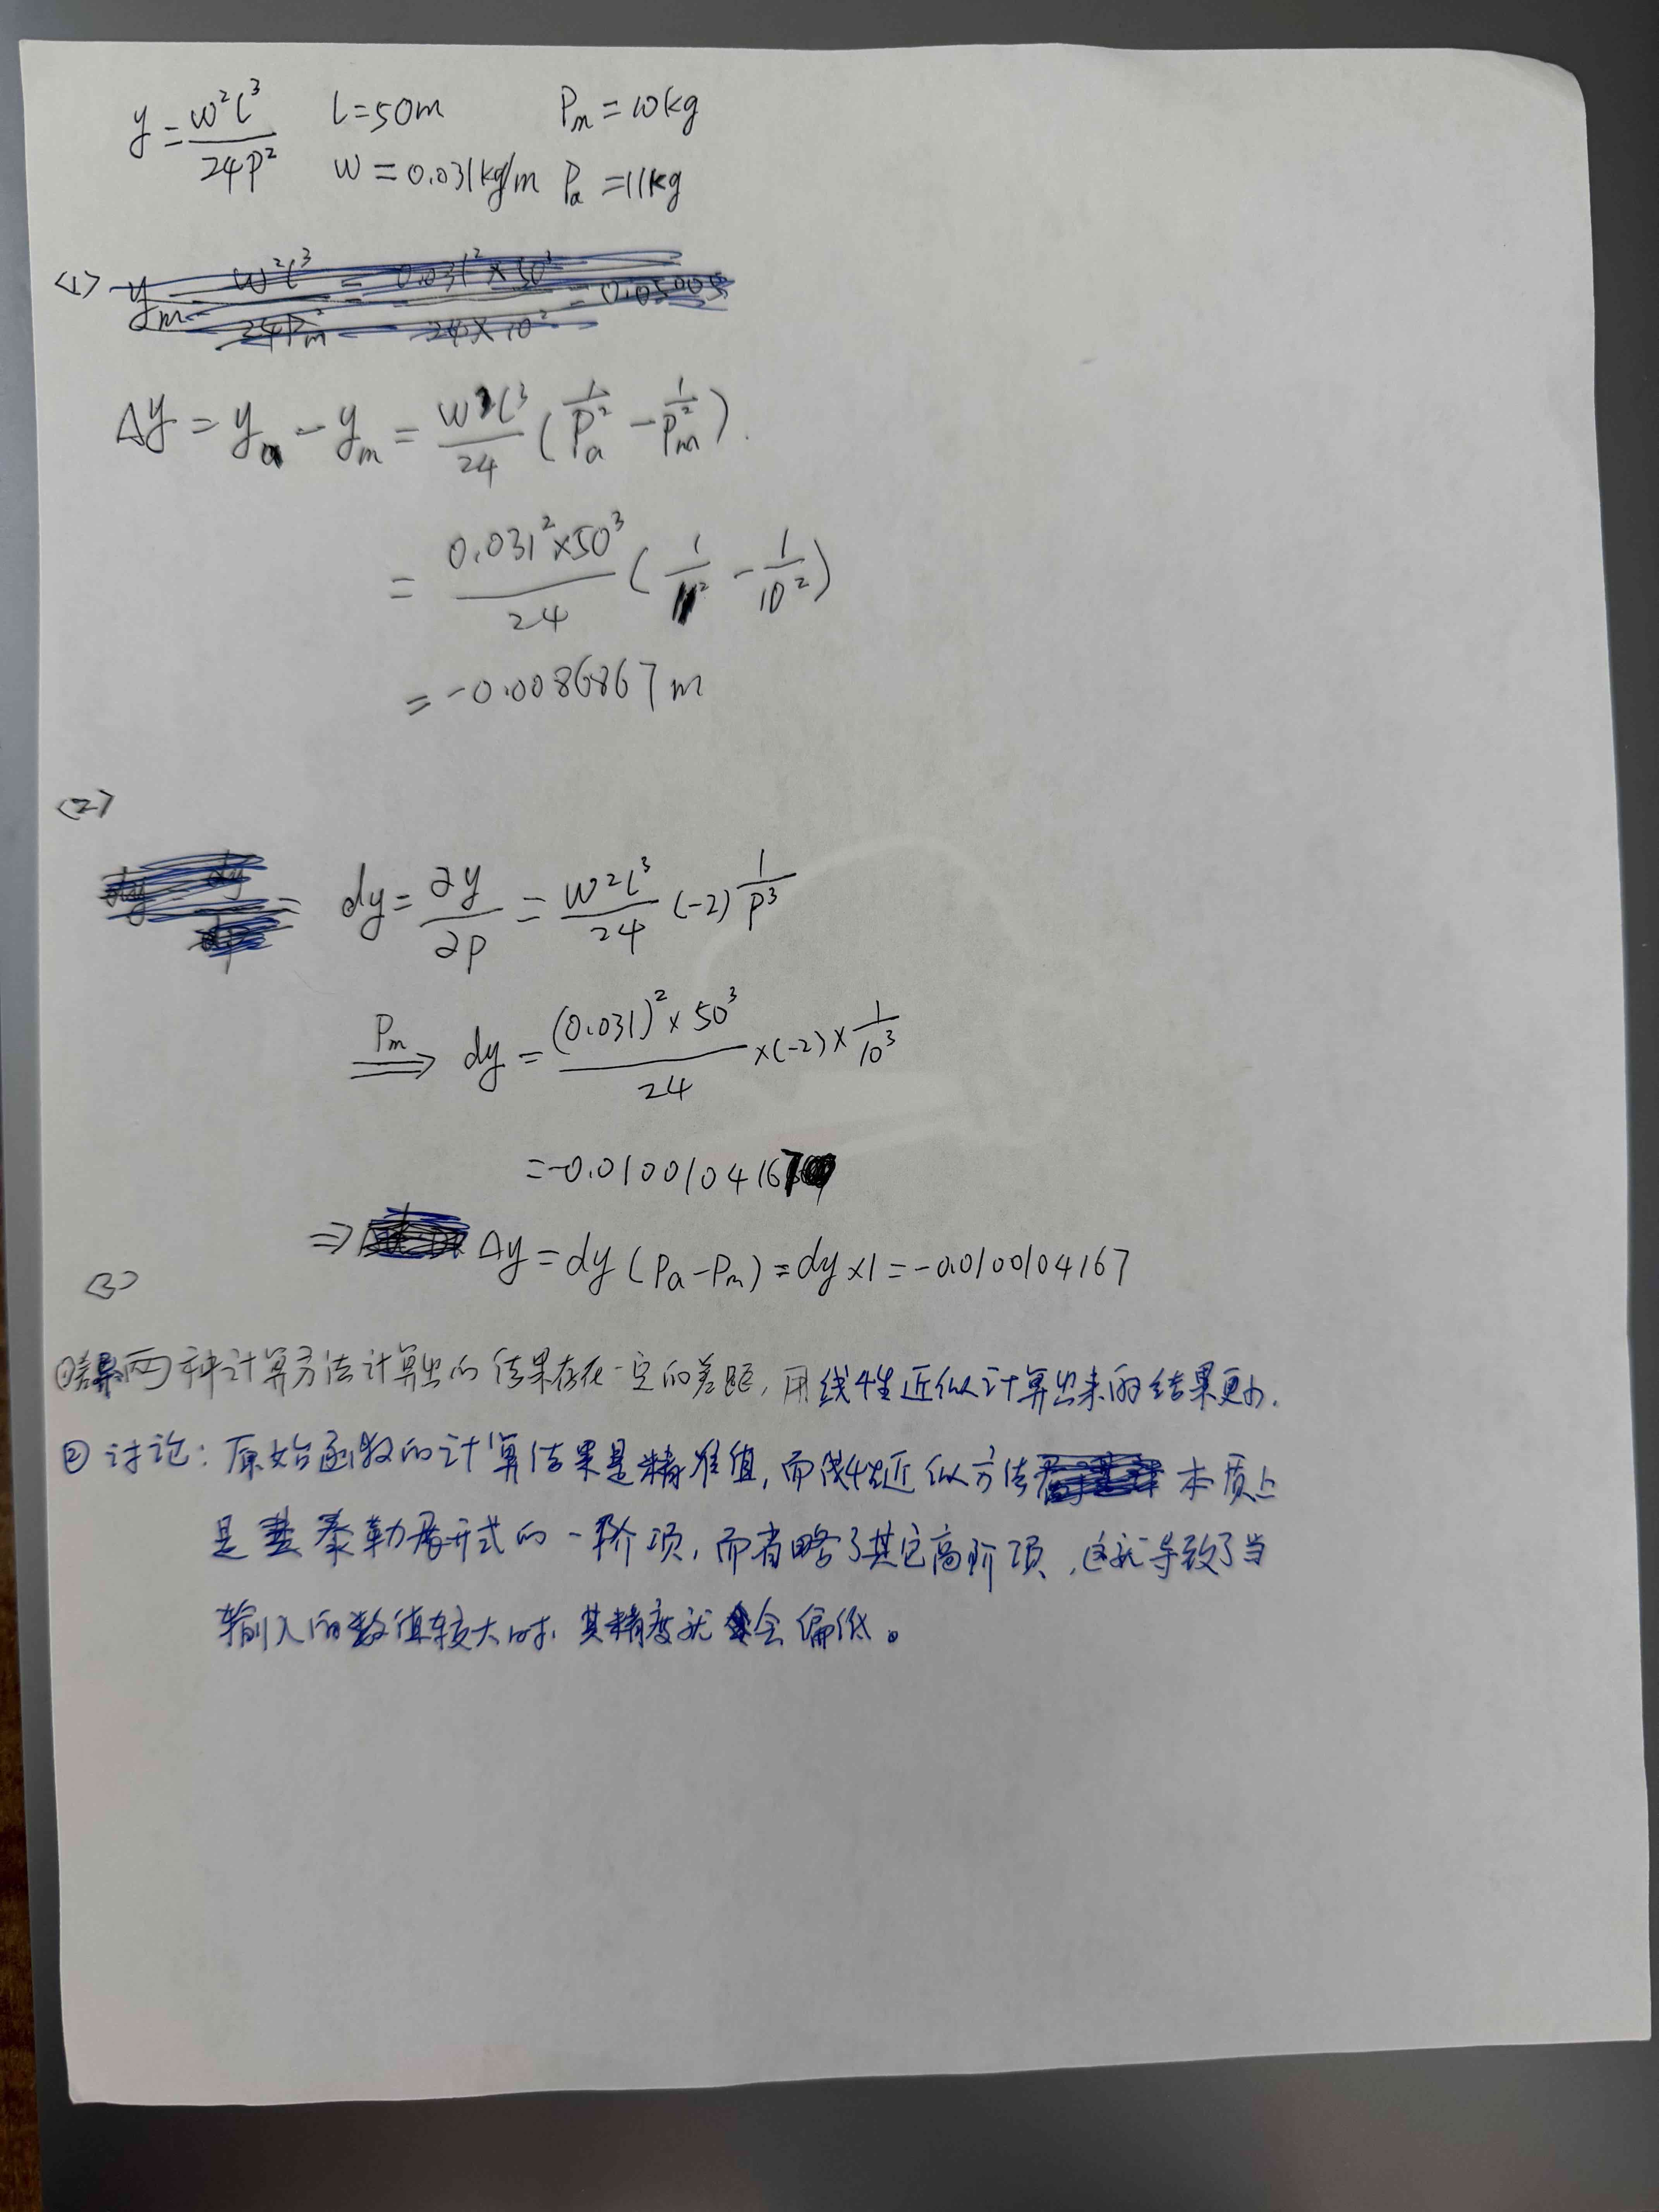 y = w²l³ / 24P²   l = 50m   Pm = 10kg
w = 0.031kg/m   Pa = 11kg
<1> ym = w²l³ / 24Pm² = 0.031² × 50³ / 24 × 10² = 0.05005
Δy = ya - ym = w²l³/24 (1/Pa² - 1/Pm²).
= 0.031² × 50³ / 24 (1/11² - 1/10²)
= -0.0086867 m
<2>
dy = ∂y/∂p = w²l³/24 (-2) 1/P³
Pm ⟹ dy = (0.031)² × 50³ / 24 × (-2) × 1/10³
= -0.0100104167
⇒ Δy = dy (Pa - Pm) = dy × 1 = -0.0100104167
<3>
① 两种计算方法计算出的结果存在一定的差距, 用线性近似计算出来的结果更小.
② 讨论: 原始函数的计算结果是精准值, 而线性近似方法本质上
是泰勒展开式的一阶项, 而省略了其它高阶项, 这就导致了当
输入的数值较大时, 其精度就会偏低。